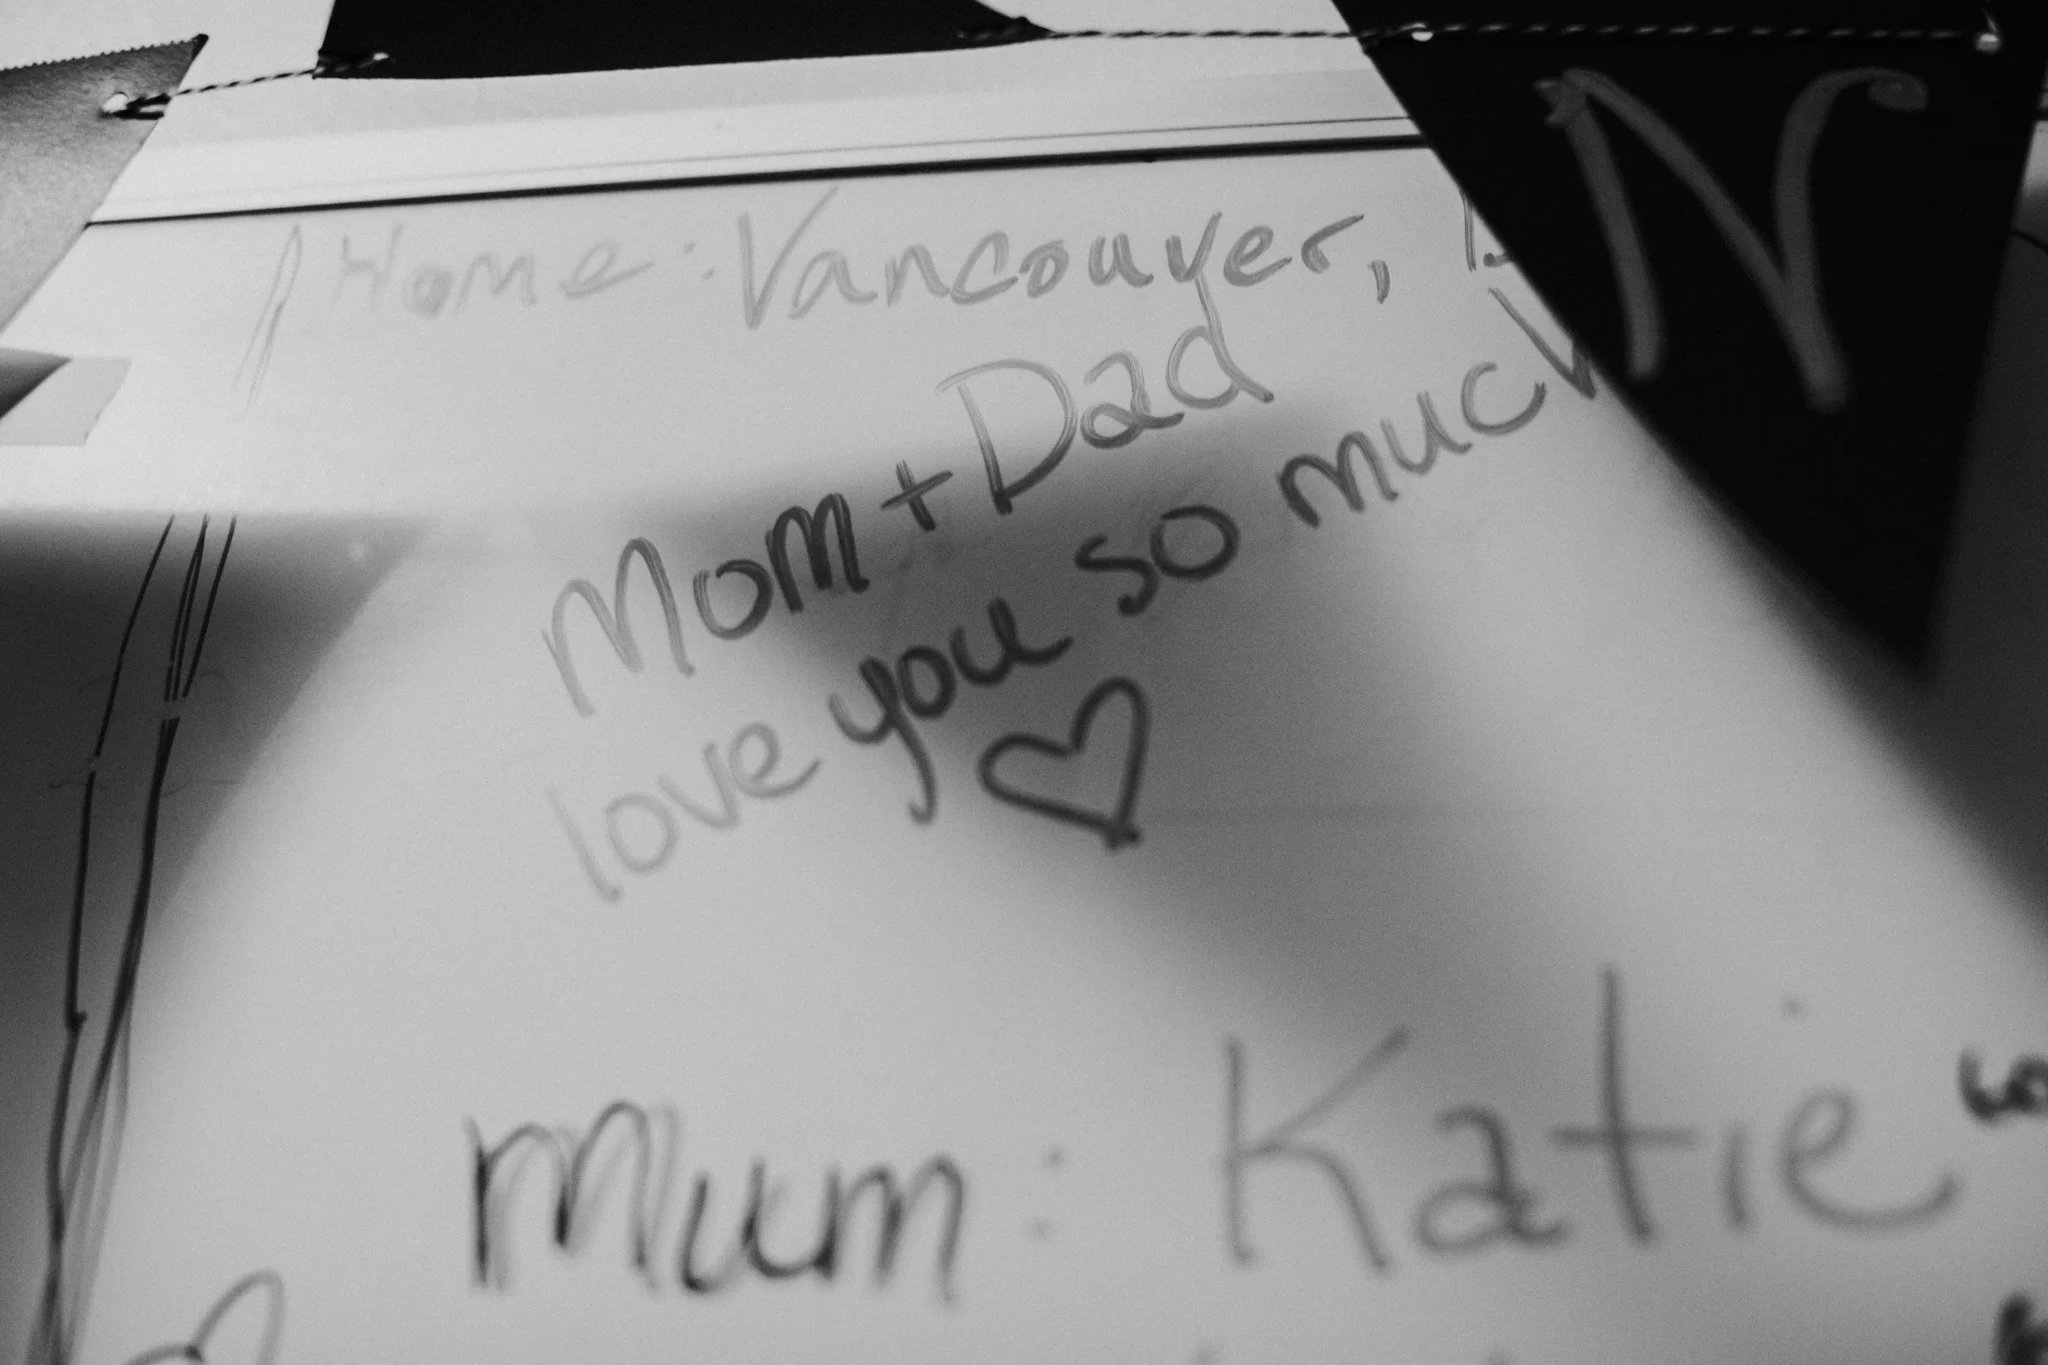 N
Home: Vancouver,
Mom + Dad
love you so much
♡
Mum: Katie